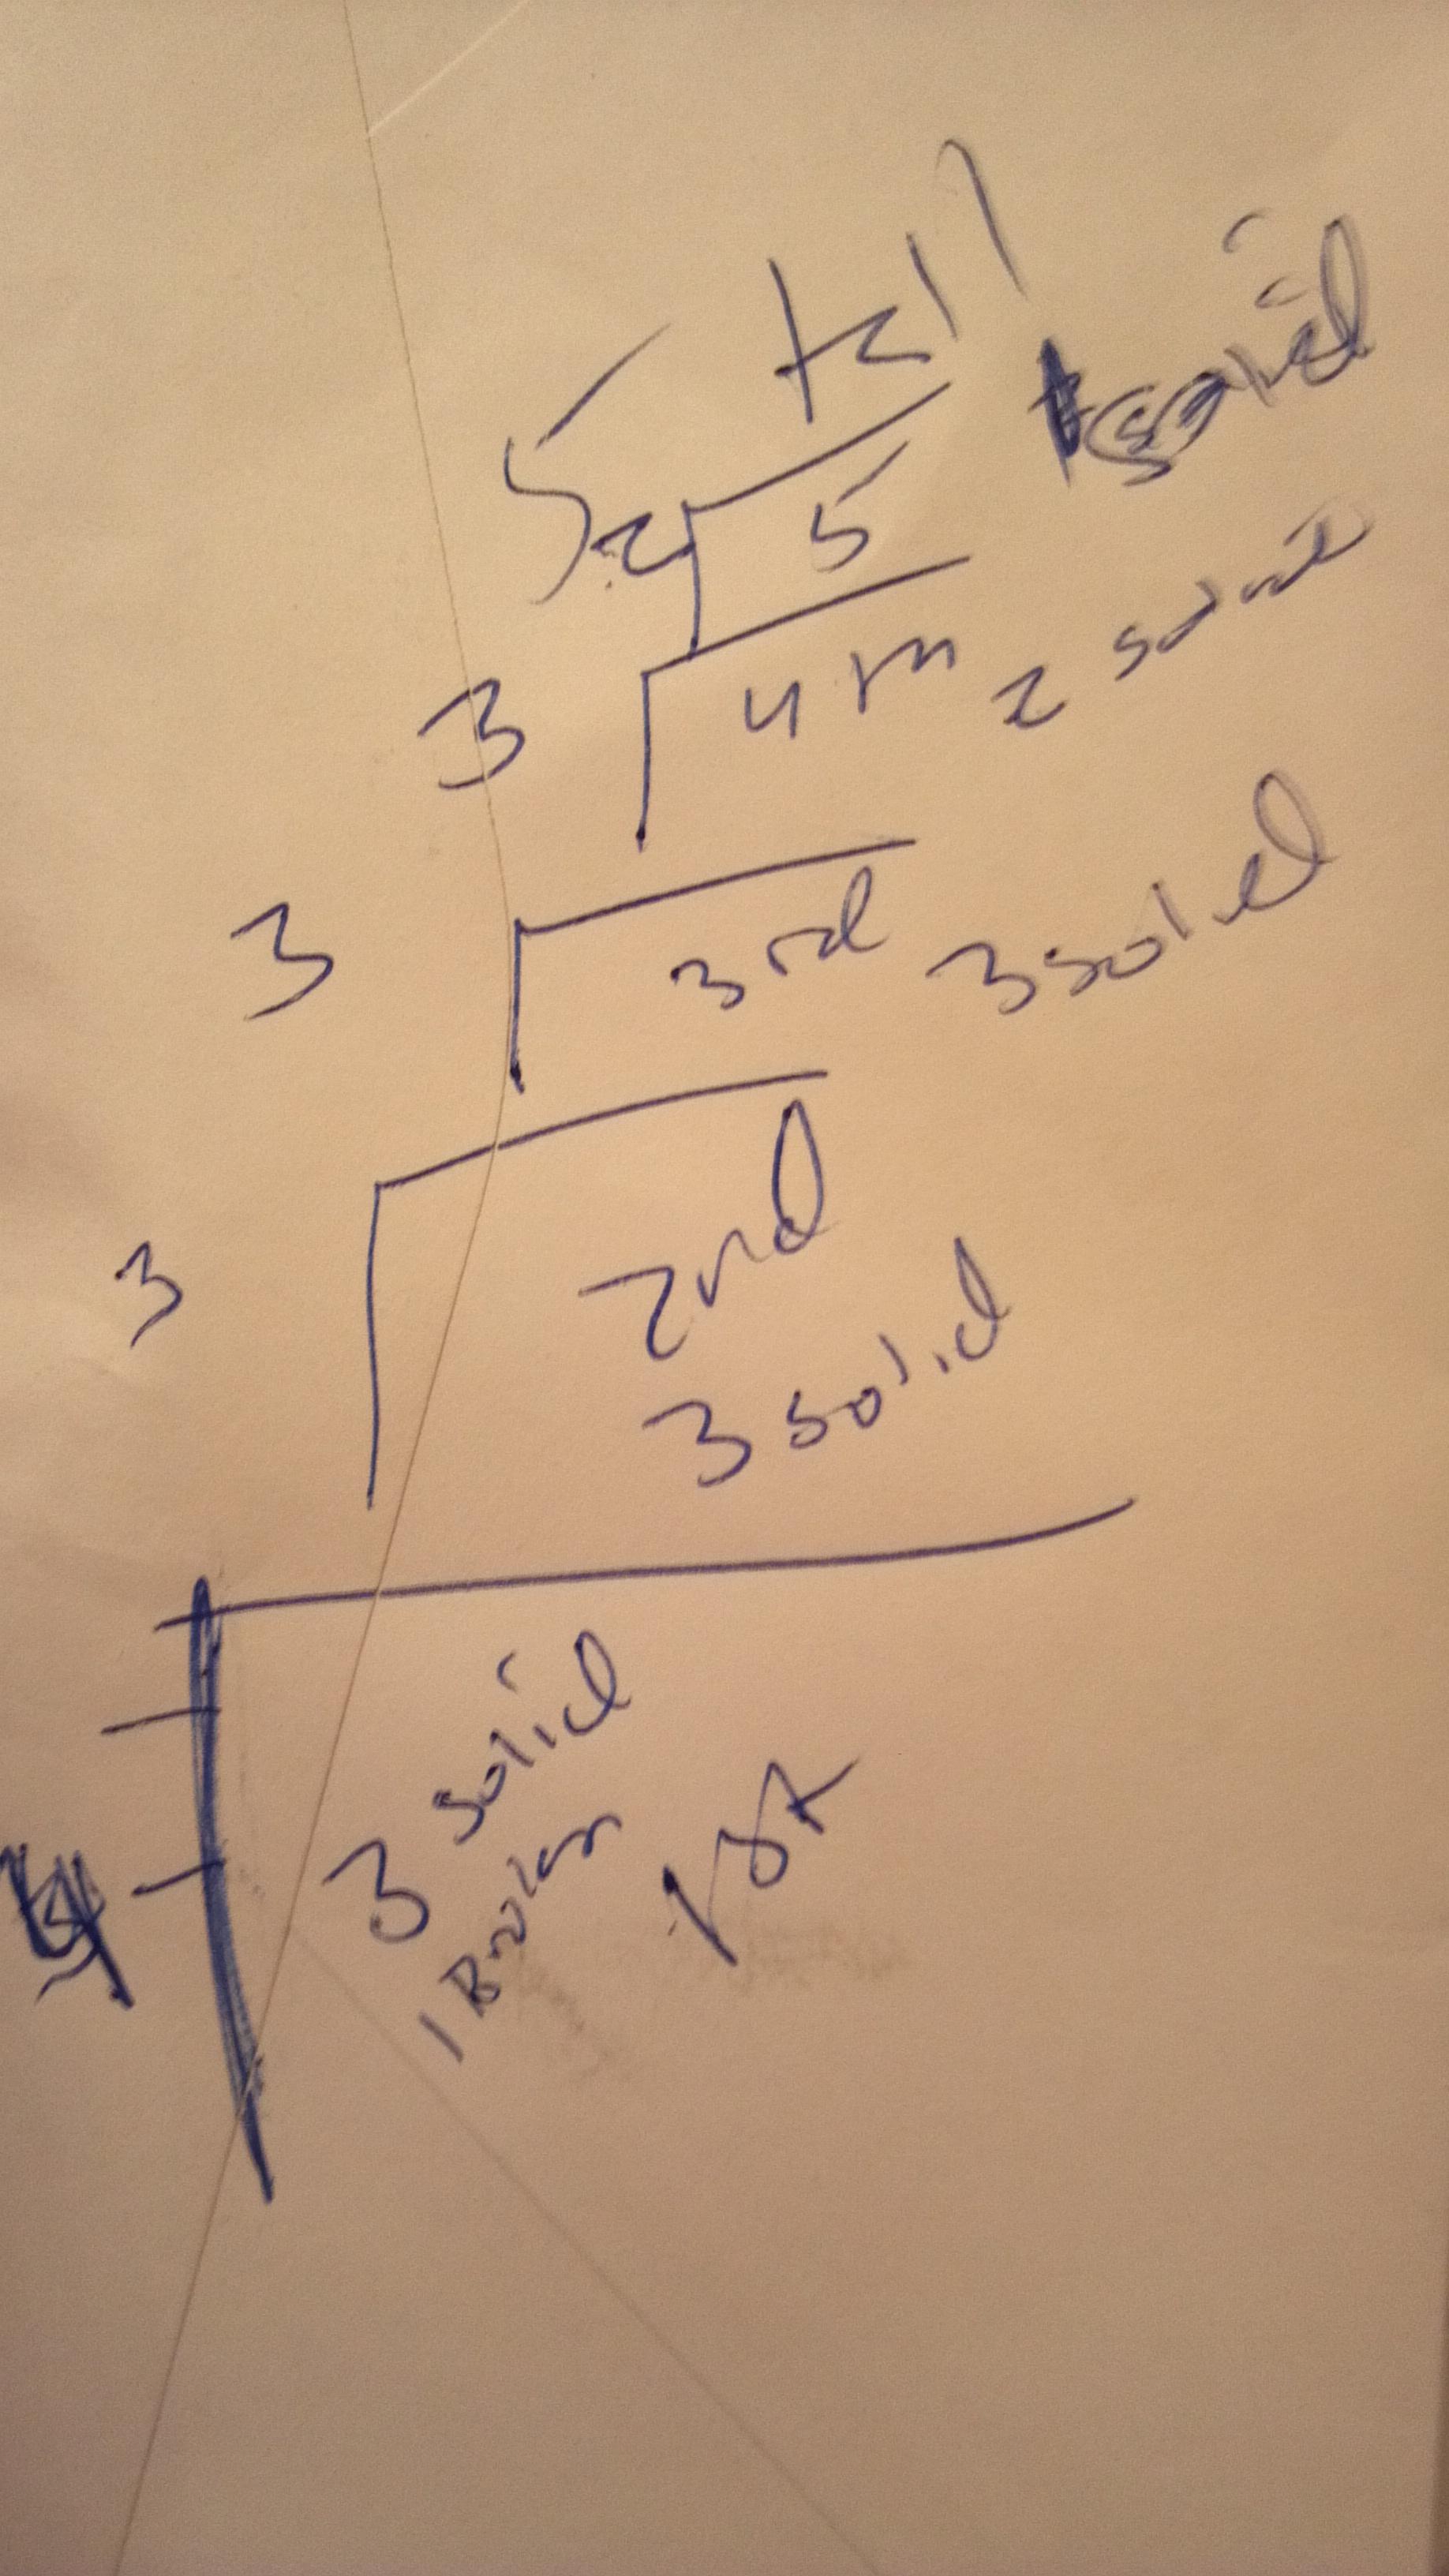 5 tall
2 5 solid
3 4th 2 solid
3 3rd 3 solid
3 2nd
3 solid
4 3 solid 1st
1 Broken